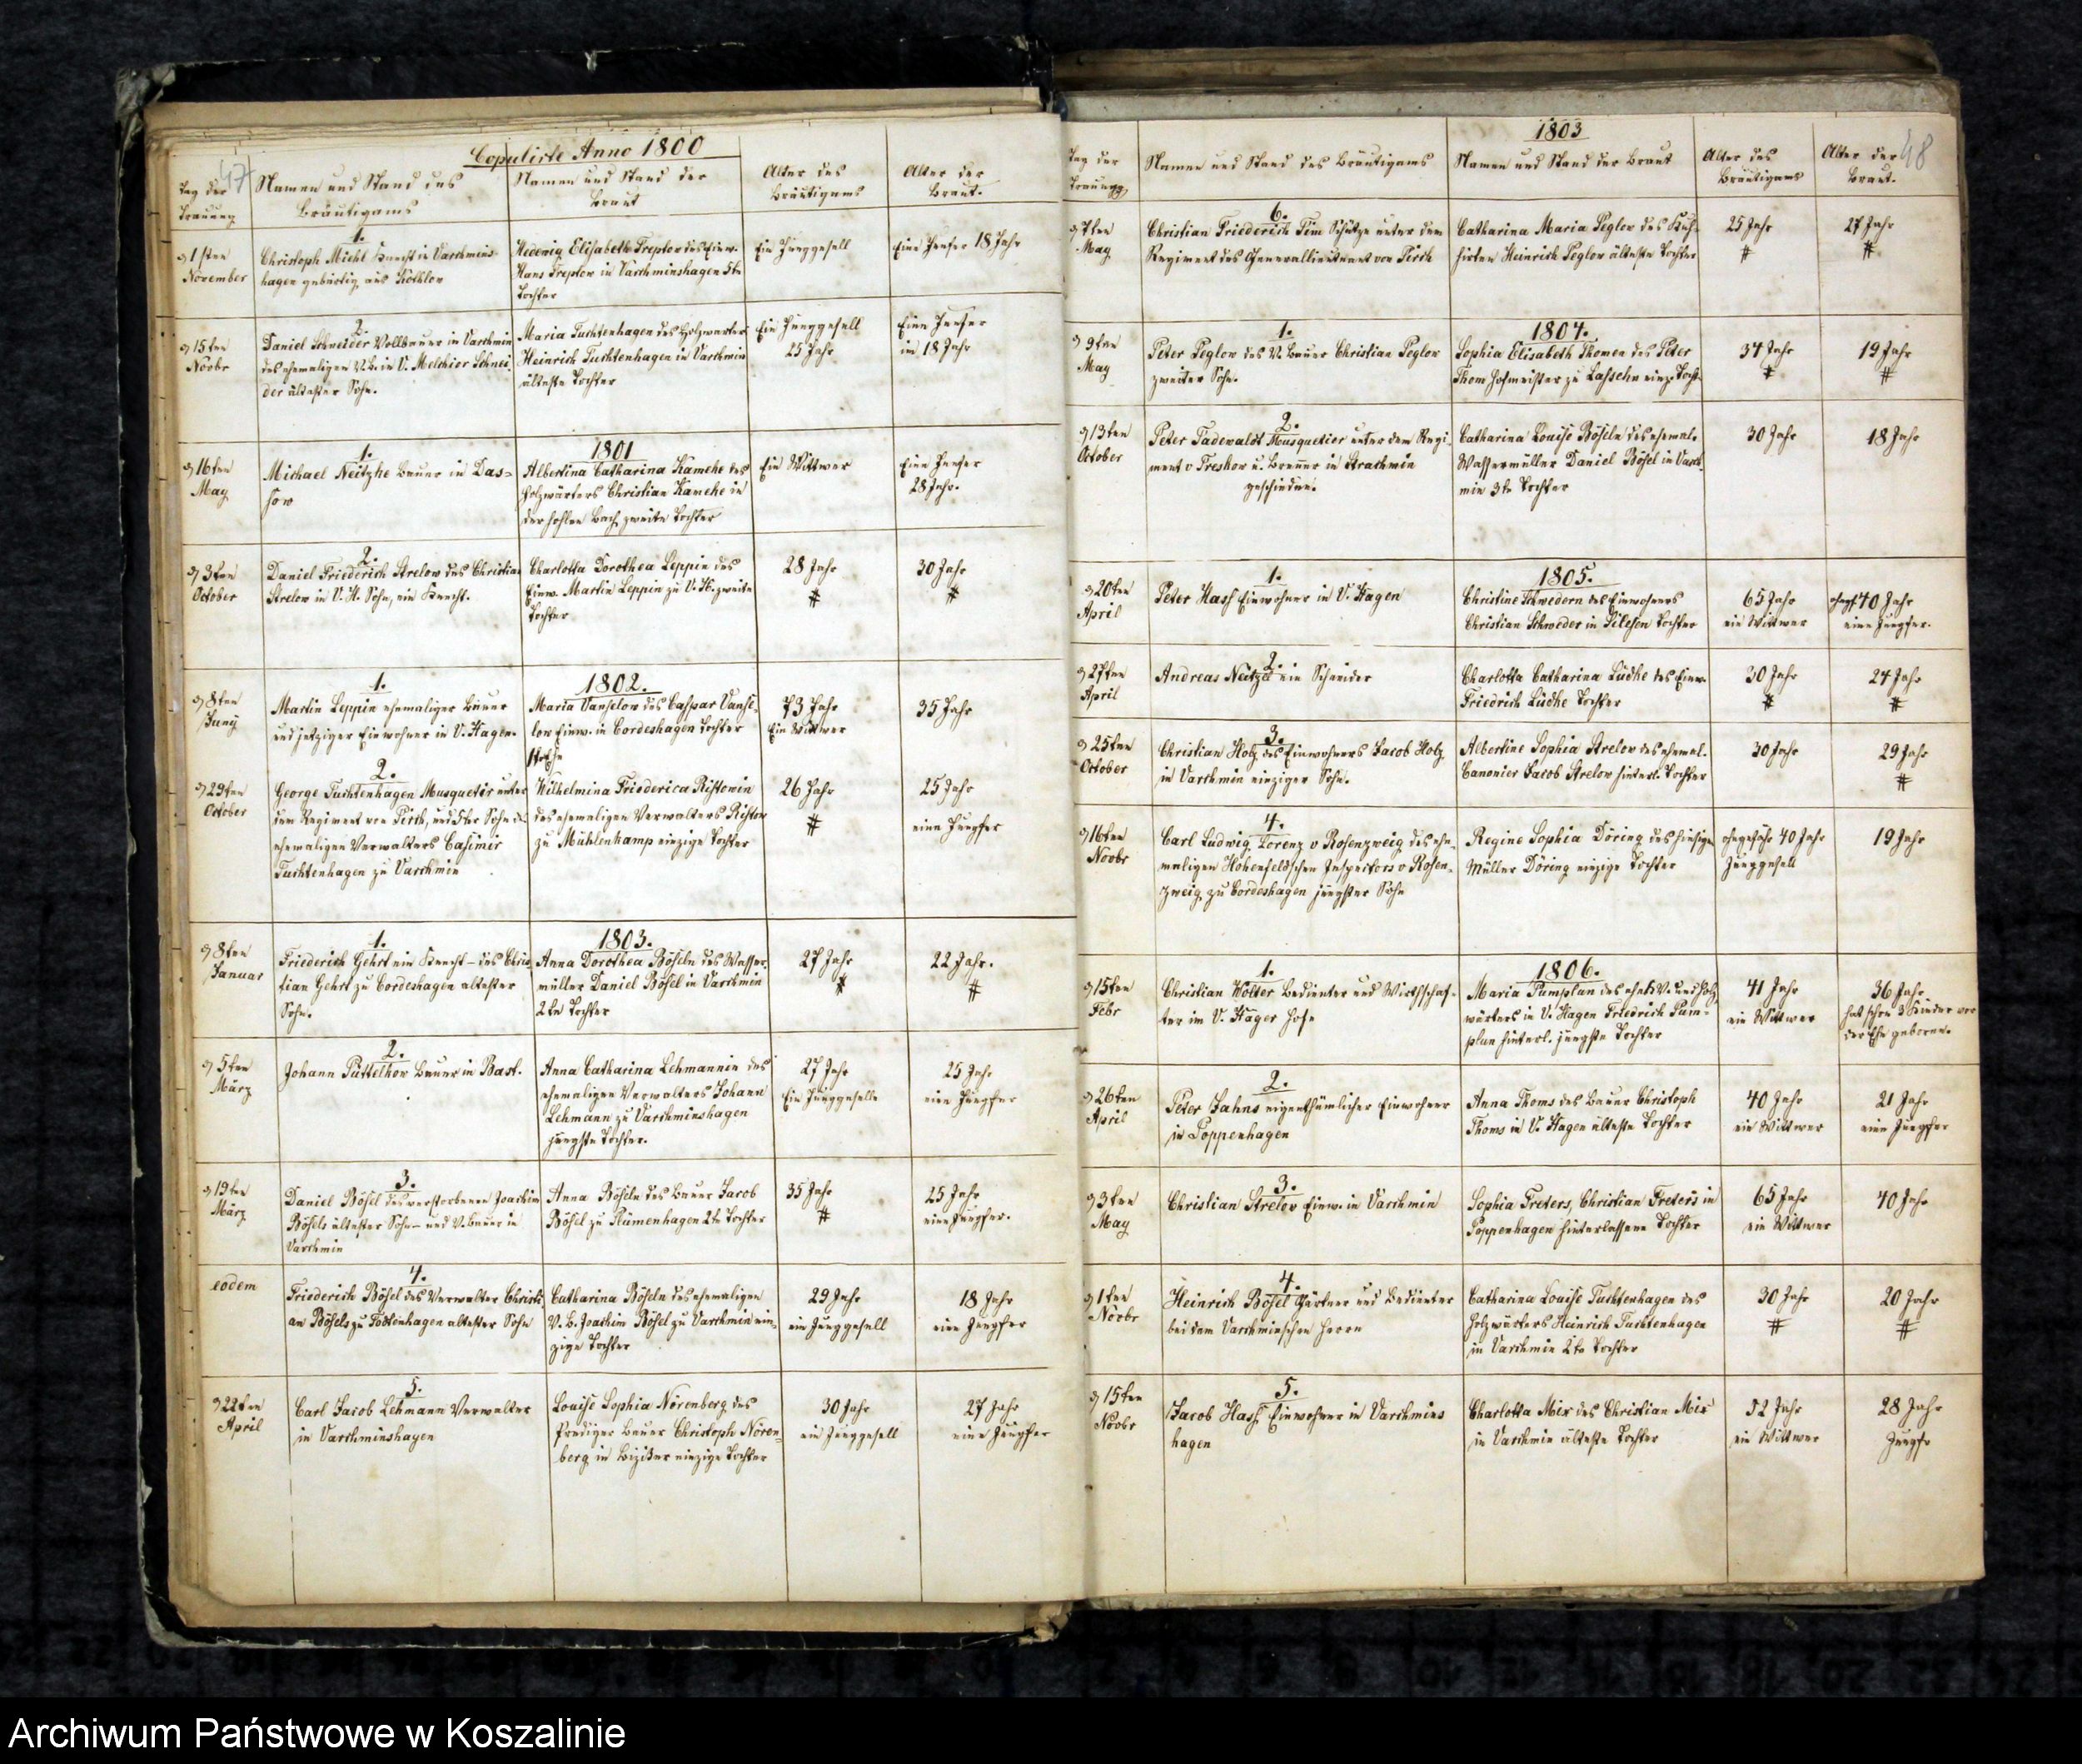 47
Copulirte Anno 1800
Tag der
Trauung
Namen und Stand des
Bräutigams
Namen und Stand der
Braut
Alter des
Bräutigams
Alter der
Braut.
1.
d 1sten
November
Christoph Miehl Knecht in Varchmins-
hagen gebürtig aus
Hedewig Elisabeth Treptow des Einw.
Hans Treptow in Varchminshagen 5te
Tochter
Ein Junggesell
Eine Junfer 18 Jahr
2.
d 15ten
Novbr
Daniel Schneider Vollbauer in Varchmin
des ehemaligen V. B. in V. Melchior Schnei
der ältester Sohn.
Maria Tuchtenhagen des Holzwärters
Heinrich Tuchtenhagen in Varchmin
älteste Tochter
Ein Junggesell
25 Jahr
Eine Junfer
in 18 Jahr
1801
1.
d 16ten
May
Michael Neitzke Bauer in Das-
sow
Albertina Catharina Kameke des
Holzwärters Christian Kameke in
der hohlen Bach zweite Tochter
Ein Wittwer
Eine Junfer
28 Jahr.
2.
d 3ten
October
Daniel Friederich Strelow des Christian
Strelow in V. H. Sohn, ein Knecht.
Charlotta Dorothea Leppin des
Einw. Martin Leppin zu V. H. zweite
Tochter
28 Jahr
#
30 Jahr
#
1802.
1.
d 8ten
Juny
Martin Leppin ehemaliger Bauer
und jetziger Einwohner in V. Hagen.
Maria Vanselow des Caspar Vanse-
low Einw. in Cordeshagen Tochter
73 Jahr
Ein Wittwer
35 Jahr
2.
d 29ten
October
George Tuchtenhagen Musquetir unter
dem Regiment von Pirch, und 5ter Sohn d.
ehemaligen Verwalters Casimir
Tuchtenhagen zu Varchmin
Wilhelmina Friederica Ristowin
des ehemaligen Verwalters Ristow
zu Mühlenkamp einzige Tochter
26 Jahr
#
25 Jahr
eine Jungfer
1803.
1.
d 8ten
Januar
Friederich Gehrt ein Knecht - des Chris
tian Gehrt zu Cordeshagen ältester
Sohn.
Anna Dorothea Böseln des Wasser-
müller Daniel Bösel in Varchmin
2te Tochter
27 Jahr
#
22 Jahr.
#
2.
d 5ten
März
Johann Püttelkow Bauer in Bast.
Anna Catharina Lehmannin des
ehemaligen Verwalters Johann
Lehmann zu Varchminshagen
jüngste Tochter.
27 Jahr
Ein Junggeselle
25 Jahr
eine Jungfer
3.
d 19ten
März
Daniel Bösel des verstorbenen Joachim
Bösels ältester Sohn - und V. Bauer in
Varchmin
Anna Böseln des Bauer Jacob
Bösel zu Plümenhagen 2te Tochter
35 Jahr
#
25 Jahr
eine Jungfer.
4.
eodem
Friederich Bösel des Verwalter Christi
an Bösels zu Todtenhagen ältester Sohn
Catharina Böseln des ehemaligen
V. B. Joachim Bösel zu Varchmin ein-
zige Tochter
29 Jahr
ein Junggesell
18 Jahr
eine Jungfer
5.
d 22ten
April
Carl Jacob Lehmann Verwalter
in Varchminshagen
Louise Sophia Nörenberg des
Prediger Bauer Christoph Nören-
berg in Biziker einzige Tochter
30 Jahr
ein Junggesell
27 Jahr
eine Jungfer
48
1803
Tag der
Trauung
Namen und Stand des Bräutigams
Namen und Stand der Braut
Alter des
Bräutigams
Alter der
Braut.
6.
d 7ten
May
Christian Friederich Tim Schütze unter dem
Regiment des Generallieutnant von Pirch
Catharina Maria Peglow des Kuh-
hirten Heinrich Peglow älteste Tochter
25 Jahr
#
27 Jahr
#
1804.
1.
d 9ten
May
Peter Peglow des V. Bauer Christian Peglow
zweiter Sohn.
Sophia Elisabeth Thomen des Peter
Thom Hofmeister zu Lassehn einz. Tocht.
34 Jahr
#
19 Jahr
#
2.
d 13ten
October
Peter Tadewaldt Musquetier unter dem Regi-
ment v Treskow u. Brenner in Strachmin
geschieden.
Catharina Louise Böseln des ehemal.
Wassermüller Daniel Bösel in Varch-
min 3te Tochter
30 Jahr
18 Jahr
1805.
1.
d 20ten
April
Peter Hass Einwohner in V. Hagen
Christine Schwedern des Einwohners
Christian Schweder in Silesen Tochter
65 Jahr
ein Wittwer
ohngf. 40 Jahr
eine Jungfer.
2.
d 27ten
April
Andreas Neitzel ein Schneider
Charlotta Catharina Lüdke des Einw.
Friedrich Lüdke Tochter
30 Jahr
#
24 Jahr
#
3.
d 25ten
October
Christian Holz des Einwohners Jacob Holz
in Varchmin einziger Sohn.
Albertine Sophia Strelow des ehemal.
Canonier Jacob Strelow hinterl. Tochter
30 Jahr
29 Jahr
#
4.
d 16ten
Novbr
Carl Ludwig Lorenz v Rosenzweig des ehe-
maligen Hohenfeldschen Inspectors v Rosen-
zweig zu Cordeshagen jüngster Sohn
Regine Sophia Döring des hiesigen
Müller Döring einzige Tochter
ohngefähr 40 Jahr
Junggesell
19 Jahr
1806.
1.
d 15ten
Febr
Christian Wolter Bedienter und Wirthschaf-
ter im V. Häger Hofe
Maria Pumplun des ehel. V. und Holz-
wärters in V. Hagen Friedrich Pum-
plun hinterl. jüngste Tochter
41 Jahr
ein Wittwer
36 Jahr
hat schon 3 Kinder vor
der Ehe geboren.
2.
d 26ten
April
Peter Jahns eigenthümlicher Einwohner
in Poppenhagen
Anna Thoms des Bauer Christoph
Thoms in V. Hagen älteste Tochter
40 Jahr
ein Wittwer
21 Jahr
eine Jungfer
3.
d 3ten
May
Christian Strelow Einw. in Varchmin
Sophia Freters, Christian Freters in
Poppenhagen hinterlassene Tochter
65 Jahr
ein Wittwer
40 Jahr
4.
d 1ten
Novbr
Heinrich Bösel Gärtner und Bedienter
bei dem Varchminschen Herrn
Catharina Louise Tuchtenhagen des
Holzwärters Heinrich Tuchtenhagen
in Varchmin 2te Tochter
30 Jahr
#
20 Jahr
#
5.
d 15ten
Novbr
Jacob Hass Einwohner in Varchmins
hagen
Charlotta Mix des Christian Mix
in Varchmin älteste Tochter
52 Jahr
ein Wittwer
28 Jahr
Jungfr
Archiwum Państwowe w Koszalinie